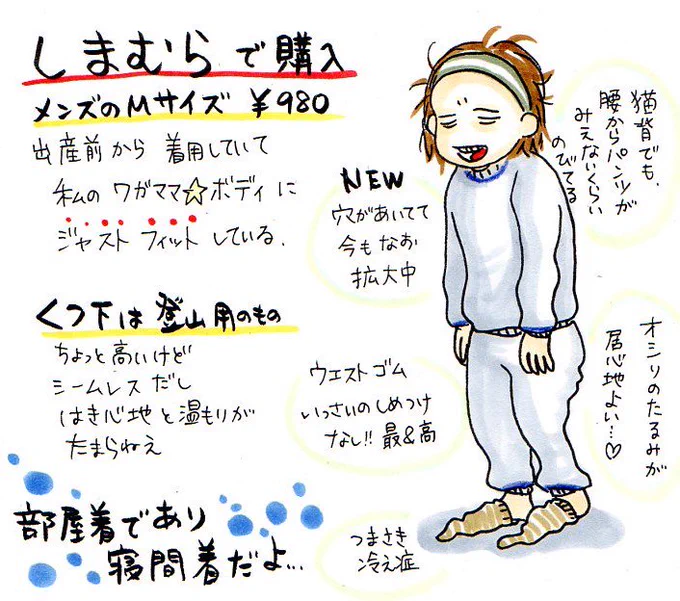 しまむらで購入
メンズのMサイズ ¥980
出産前から 着用していて
私の ワガママ☆ボディに
ジャスト フィットしている.
くつ下は 登山用のもの
ちょっと高いけど
シームレスだし
はき心地と温もりが
たまらねえ
部屋着であり
寝間着だよ…
NEW
穴があいてて
今もなお
拡大中
ウエストゴム
いっさいのしめつけ
なし!! 最&高
つまさき
冷え症
猫背でも、
腰からパンツが
みえないくらい
のびてる
オシリのたるみが
居心地よい…♡